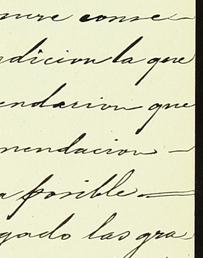 mere conse-
dicion la que
endacion que
mendacion -
a posible =
gado las gra